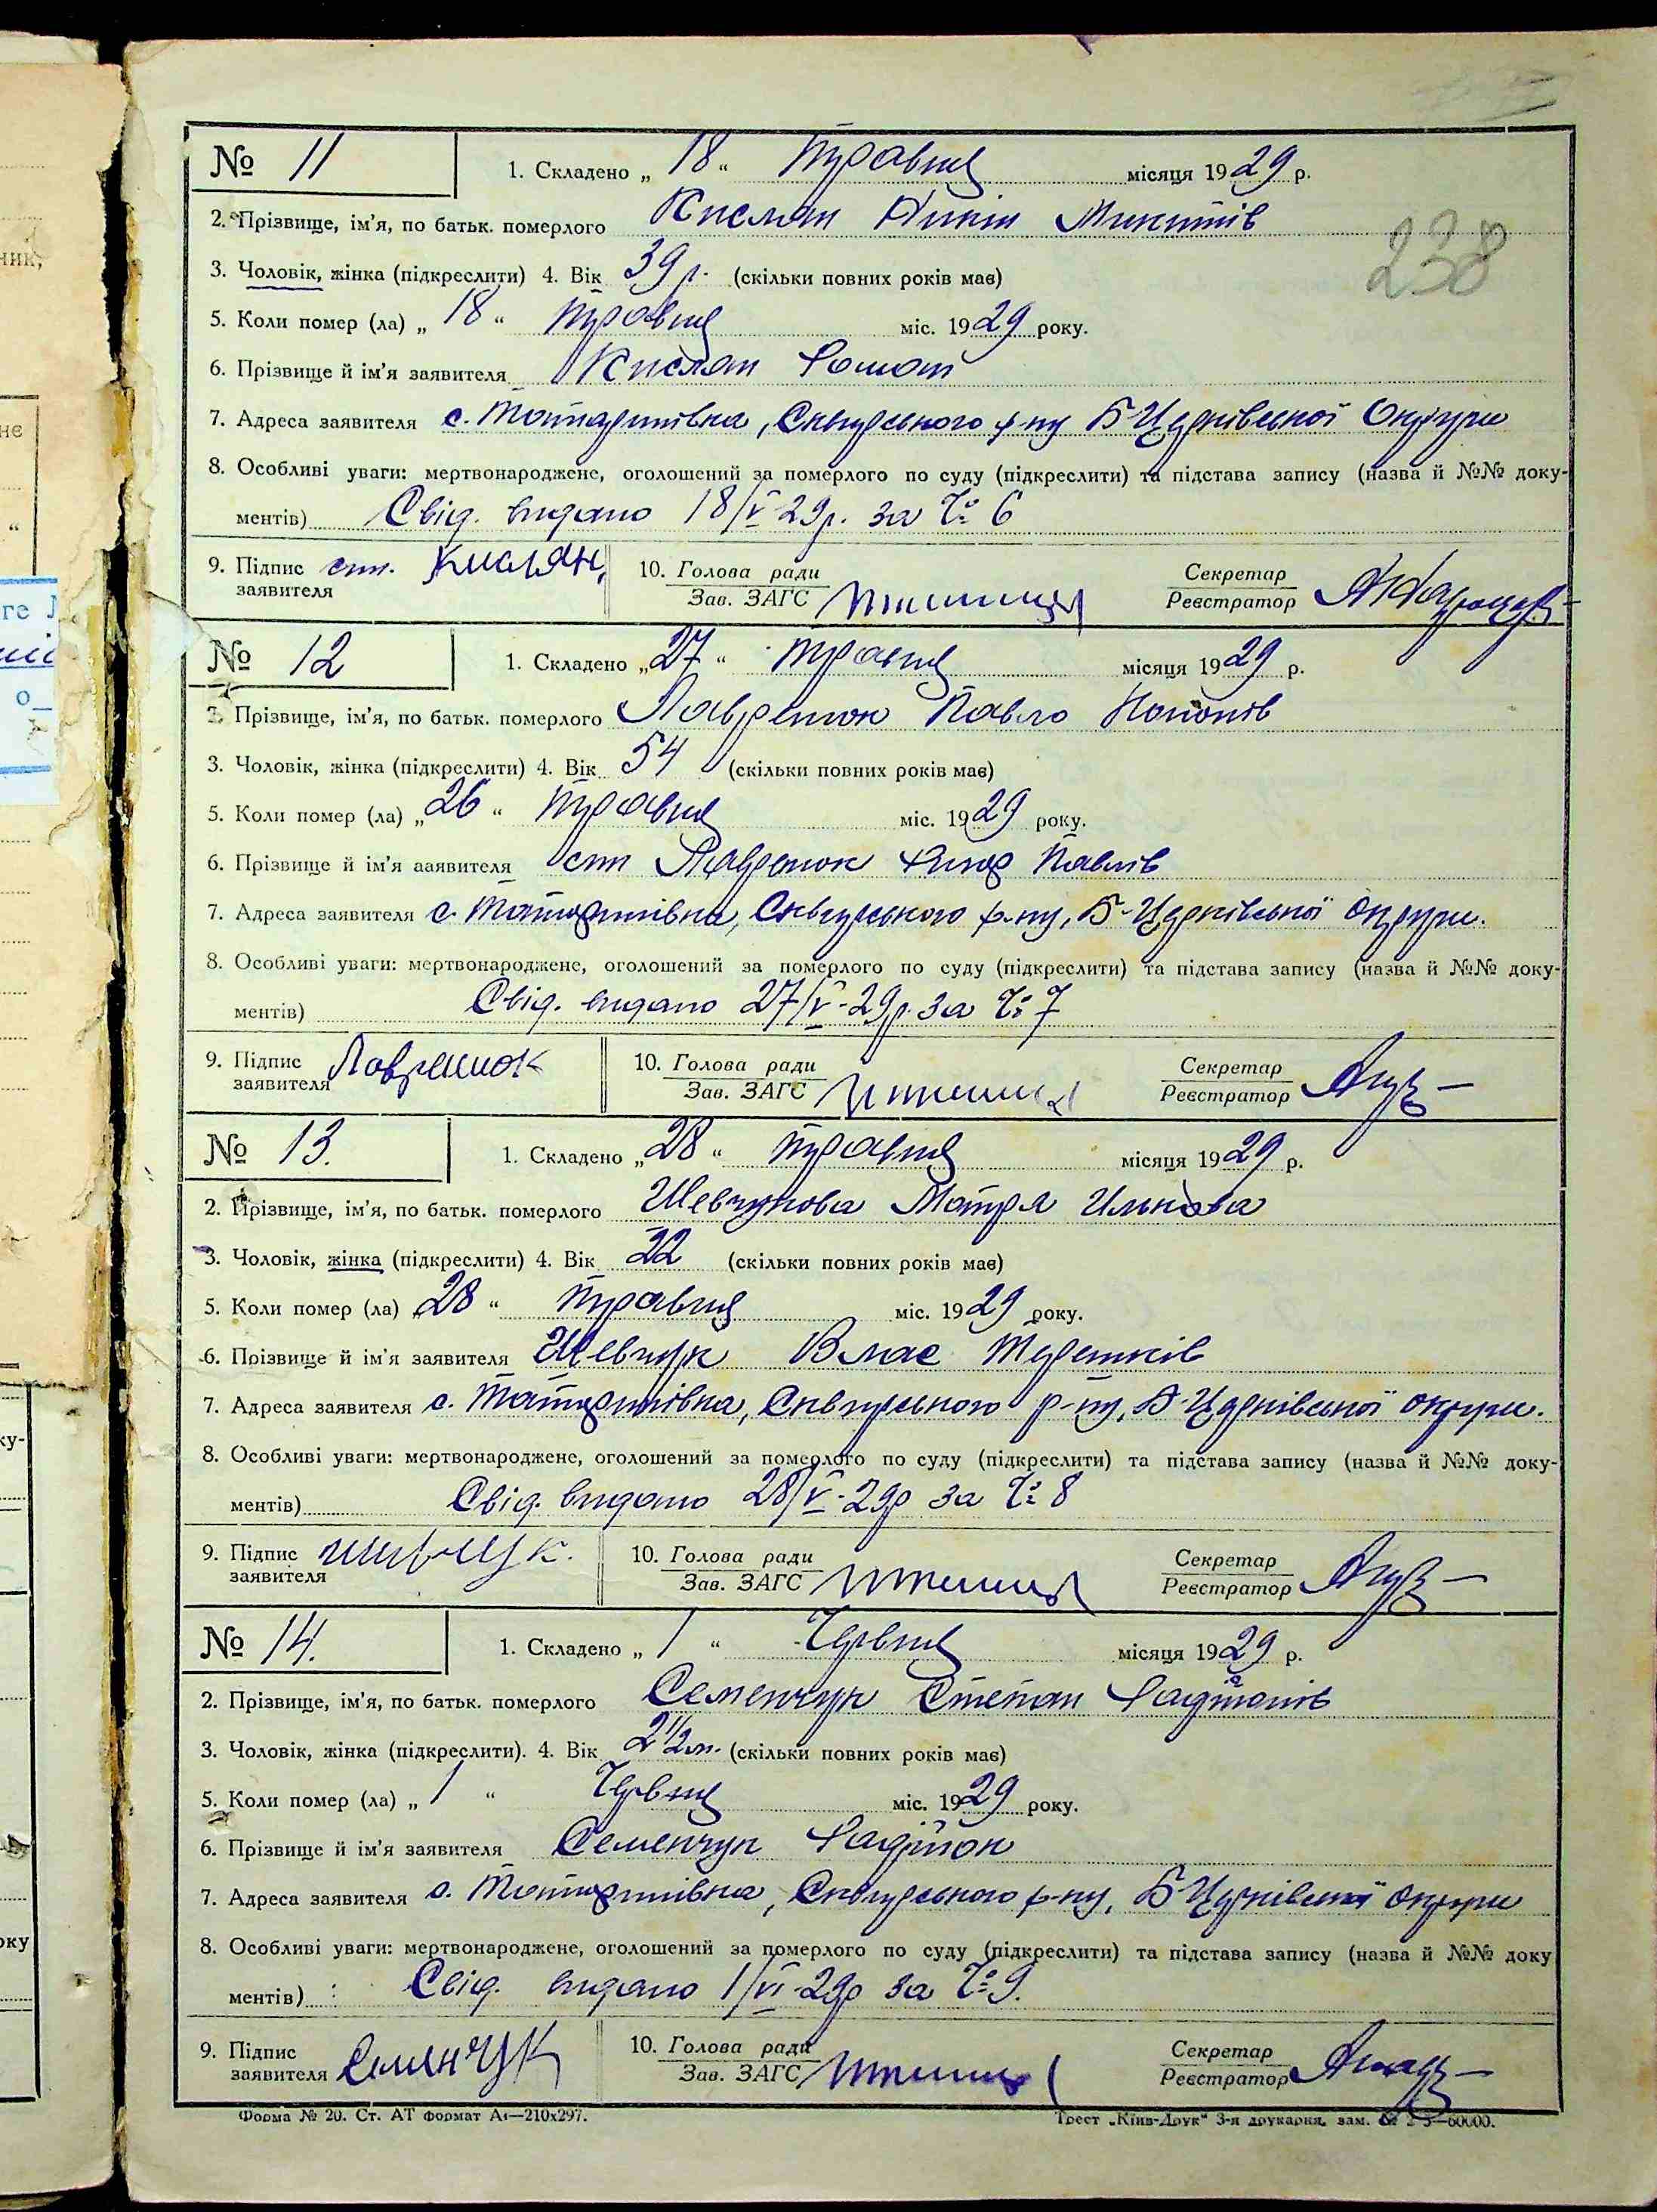 № 11 1. Складено „ 18 “ травня місяця 1929 р.
2. Прізвище, ім'я, по батьк. померлого Кислян Микитів
238
3. Чоловік, жінка (підкреслити) 4. Вік 39 р. (скільки повних років має)
5. Коли помер (ла) „ 18 “ травня міс. 1929 року.
6. Прізвище й ім'я заявителя Кислян Роман
7. Адреса заявителя с. Татаринівка, Сквирського р-ну Б-Церківської Округи
8. Особливі уваги: мертвонароджене, оголошений за померлого по суду (підкреслити) та підстава запису (назва й №№ доку-
ментів) Свід. видано 18/V-29р. за № 6
9. Підпис Кислян 10. Голова ради Секретар
заявителя Зав. ЗАГС Реєстратор
№ 12 1. Складено „ 27 “ травня місяця 1929 р.
2. Прізвище, ім'я, по батьк. померлого Лавренюк Павло
3. Чоловік, жінка (підкреслити) 4. Вік 54 (скільки повних років має)
5. Коли помер (ла) „ 26 “ травня міс. 1929 року.
6. Прізвище й ім'я ааявителя Лавренюк Павлів
7. Адреса заявителя с. Татаринівка, Сквирського р-ну, Б-Церківської округи.
8. Особливі уваги: мертвонароджене, оголошений за померлого по суду (підкреслити) та підстава запису (назва й №№ доку-
ментів) Свід. видано 27/V-29р. за № 7
9. Підпис Лавренюк 10. Голова ради Секретар
заявителя Зав. ЗАГС Реєстратор
№ 13. 1. Складено „ 28 “ травня місяця 1929 р.
2. Прізвище, ім'я, по батьк. померлого Шевчукова Мотря Ількова
3. Чоловік, жінка (підкреслити) 4. Вік 22 (скільки повних років має)
5. Коли помер (ла) „ 28 “ травня міс. 1929 року.
6. Прізвище й ім'я заявителя Шевчук Влас Терешків
7. Адреса заявителя с. Татаринівка, Сквирського р-ну, Б-Церківської округи.
8. Особливі уваги: мертвонароджене, оголошений за померлого по суду (підкреслити) та підстава запису (назва й №№ доку-
ментів) Свід. видано 28/V-29р за № 8
9. Підпис 10. Голова ради Секретар
заявителя Зав. ЗАГС Реєстратор
№ 14. 1. Складено „ 1 “ Червня місяця 1929 р.
2. Прізвище, ім'я, по батьк. померлого Семенчук Степан
3. Чоловік, жінка (підкреслити). 4. Вік 2 1/2 м. (скільки повних років має)
5. Коли помер (ла) „ 1 “ Червня міс. 1929 року.
6. Прізвище й ім'я заявителя Семенчук
7. Адреса заявителя с. Татаринівка, Сквирського р-ну, Б-Церківської округи
8. Особливі уваги: мертвонароджене, оголошений за померлого по суду (підкреслити) та підстава запису (назва й №№ доку
ментів) Свід. видано 1/VI-29р за № 9.
9. Підпис Семенчук 10. Голова ради Секретар
заявителя Зав. ЗАГС Реєстратор
Форма № 20. Ст. АТ Формат А4—210х297. Трест „Київ-Друк“ 3-я друкарня, зам.